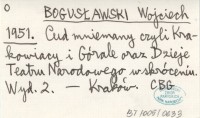 O
BOGUSŁAWSKI Wojciech
1951. Cud mniemany czyli Kra-
kowiacy i Górale oraz Dzieje
Teatru Narodowego w skróceniu.
Wyd. 2. — Kraków. CBG
57/005/0033